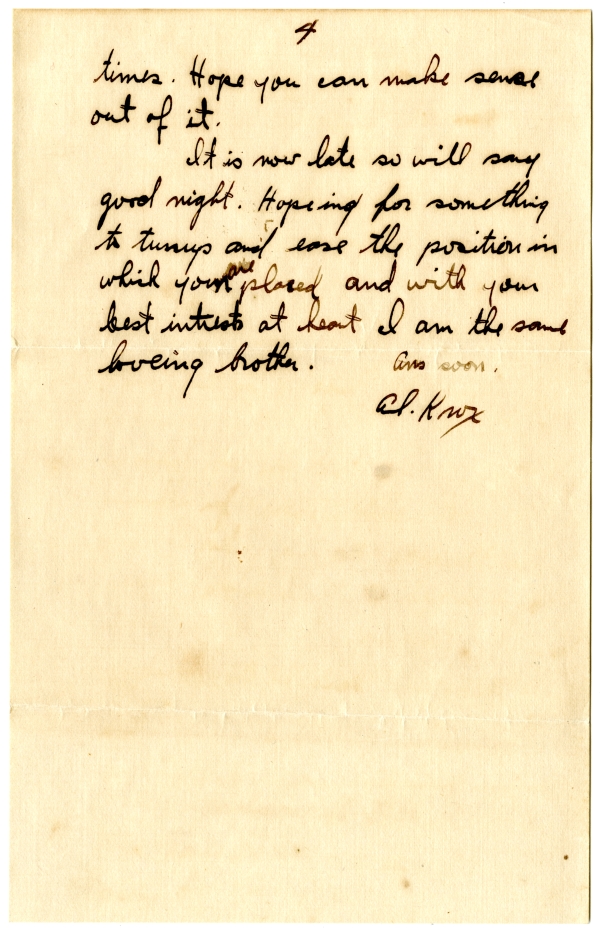 4
times. Hope you can make sense
out of it.
It is now late so will say
good night. Hopeing for something
to turnup and ease the position in
which you are placed and with your
best intrests at heart I am the same
loveing brother. Ans soon.
Al. Knox